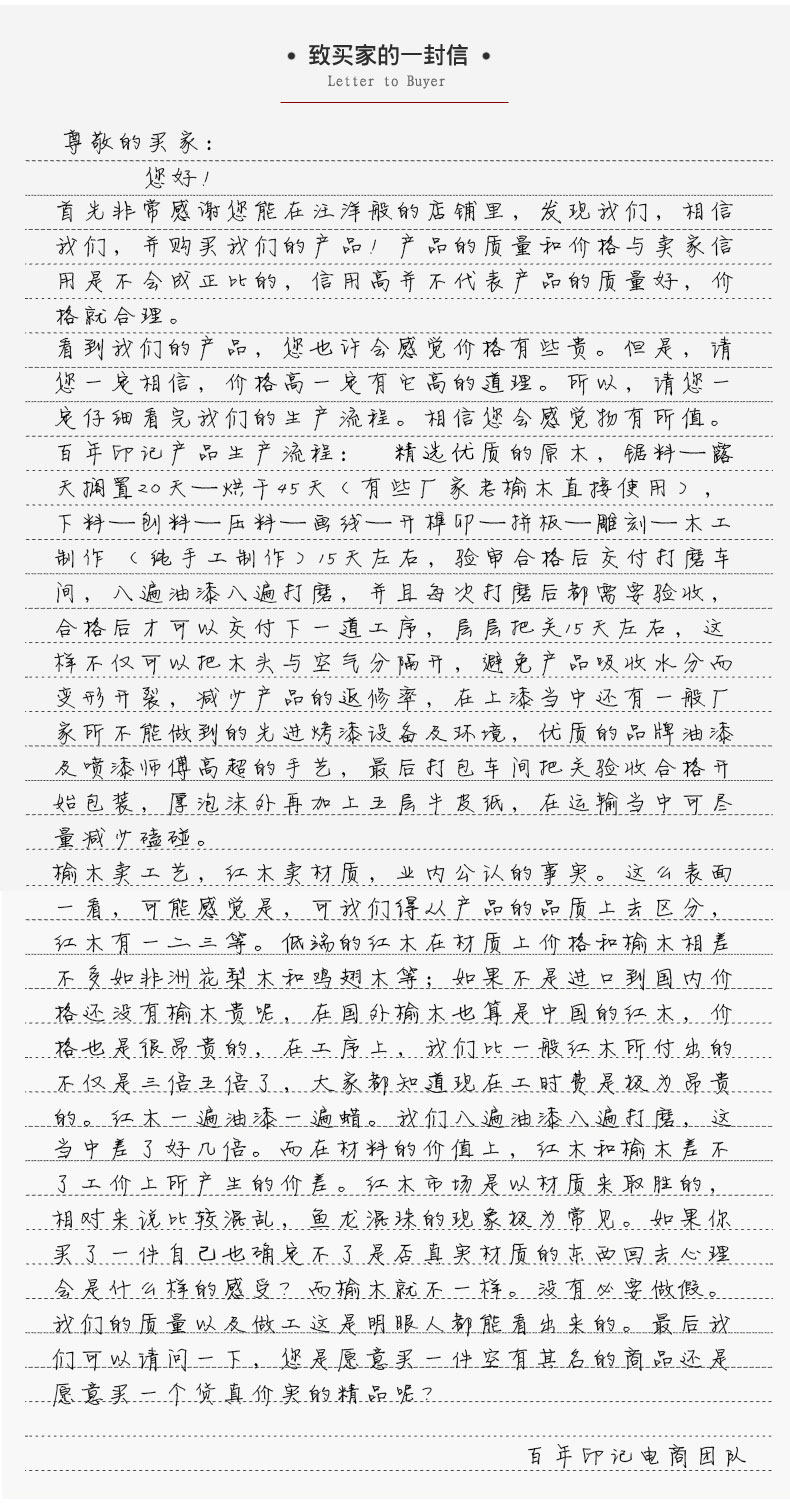 • 致买家的一封信 •
Letter to Buyer
尊敬的买家：
您好！
首先非常感谢您能在汪洋般的店铺里，发现我们，相信
我们，并购买我们的产品！产品的质量和价格与卖家信
用是不会成正比的，信用高并不代表产品的质量好，价
格就合理。
看到我们的产品，您也许会感觉价格有些贵。但是，请
您一定相信，价格高一定有它高的道理。所以，请您一
定仔细看完我们的生产流程。相信您会感觉物有所值。
百年印记产品生产流程： 精选优质的原木，锯料—露
天搁置20天—烘干45天（有些厂家老榆木直接使用），
下料—刨料—压料—画线—开榫卯—拼板—雕刻—木工
制作（纯手工制作）15天左右，验审合格后交付打磨车
间，八遍油漆八遍打磨，并且每次打磨后都需要验收，
合格后才可以交付下一道工序，层层把关15天左右，这
样不仅可以把木头与空气分隔开，避免产品吸收水分而
变形开裂，减少产品的返修率，在上漆当中还有一般厂
家所不能做到的先进烤漆设备及环境，优质的品牌油漆
及喷漆师傅高超的手艺，最后打包车间把关验收合格开
始包装，厚泡沫外再加上五层牛皮纸，在运输当中可尽
量减少磕碰。
榆木卖工艺，红木卖材质，业内公认的事实。这么表面
一看，可能感觉是，可我们得从产品的品质上去区分，
红木有一二三等。低端的红木在材质上价格和榆木相差
不多如非洲花梨木和鸡翅木等；如果不是进口到国内价
格还没有榆木贵呢，在国外榆木也算是中国的红木，价
格也是很昂贵的，在工序上，我们比一般红木所付出的
不仅是三倍五倍了，大家都知道现在工时费是极为昂贵
的。红木一遍油漆一遍蜡。我们八遍油漆八遍打磨，这
当中差了好几倍。而在材料的价值上，红木和榆木差不
了工价上所产生的价差。红木市场是以材质来取胜的，
相对来说比较混乱，鱼龙混珠的现象极为常见。如果你
买了一件自己也确定不了是否真实材质的东西回去心理
会是什么样的感受？而榆木就不一样。没有必要做假。
我们的质量以及做工这是明眼人都能看出来的。最后我
们可以请问一下，您是愿意买一件空有其名的商品还是
愿意买一个货真价实的精品呢？
百年印记电商团队